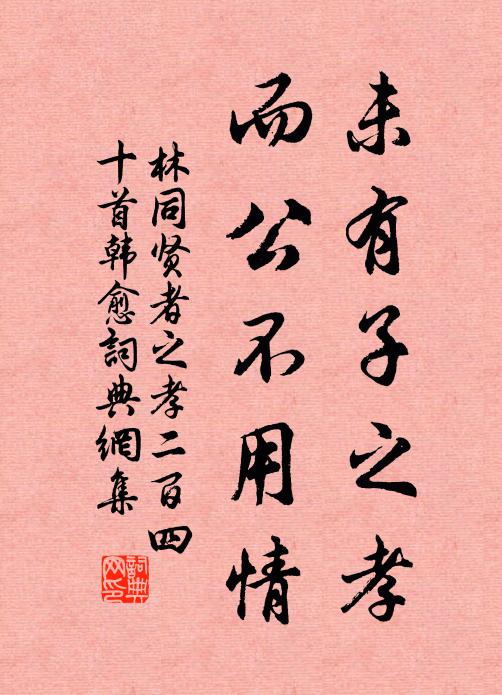 未有子之孝
而公不用情
林同贤者之孝二百四
十首韩愈詞典網集
詞典
网印